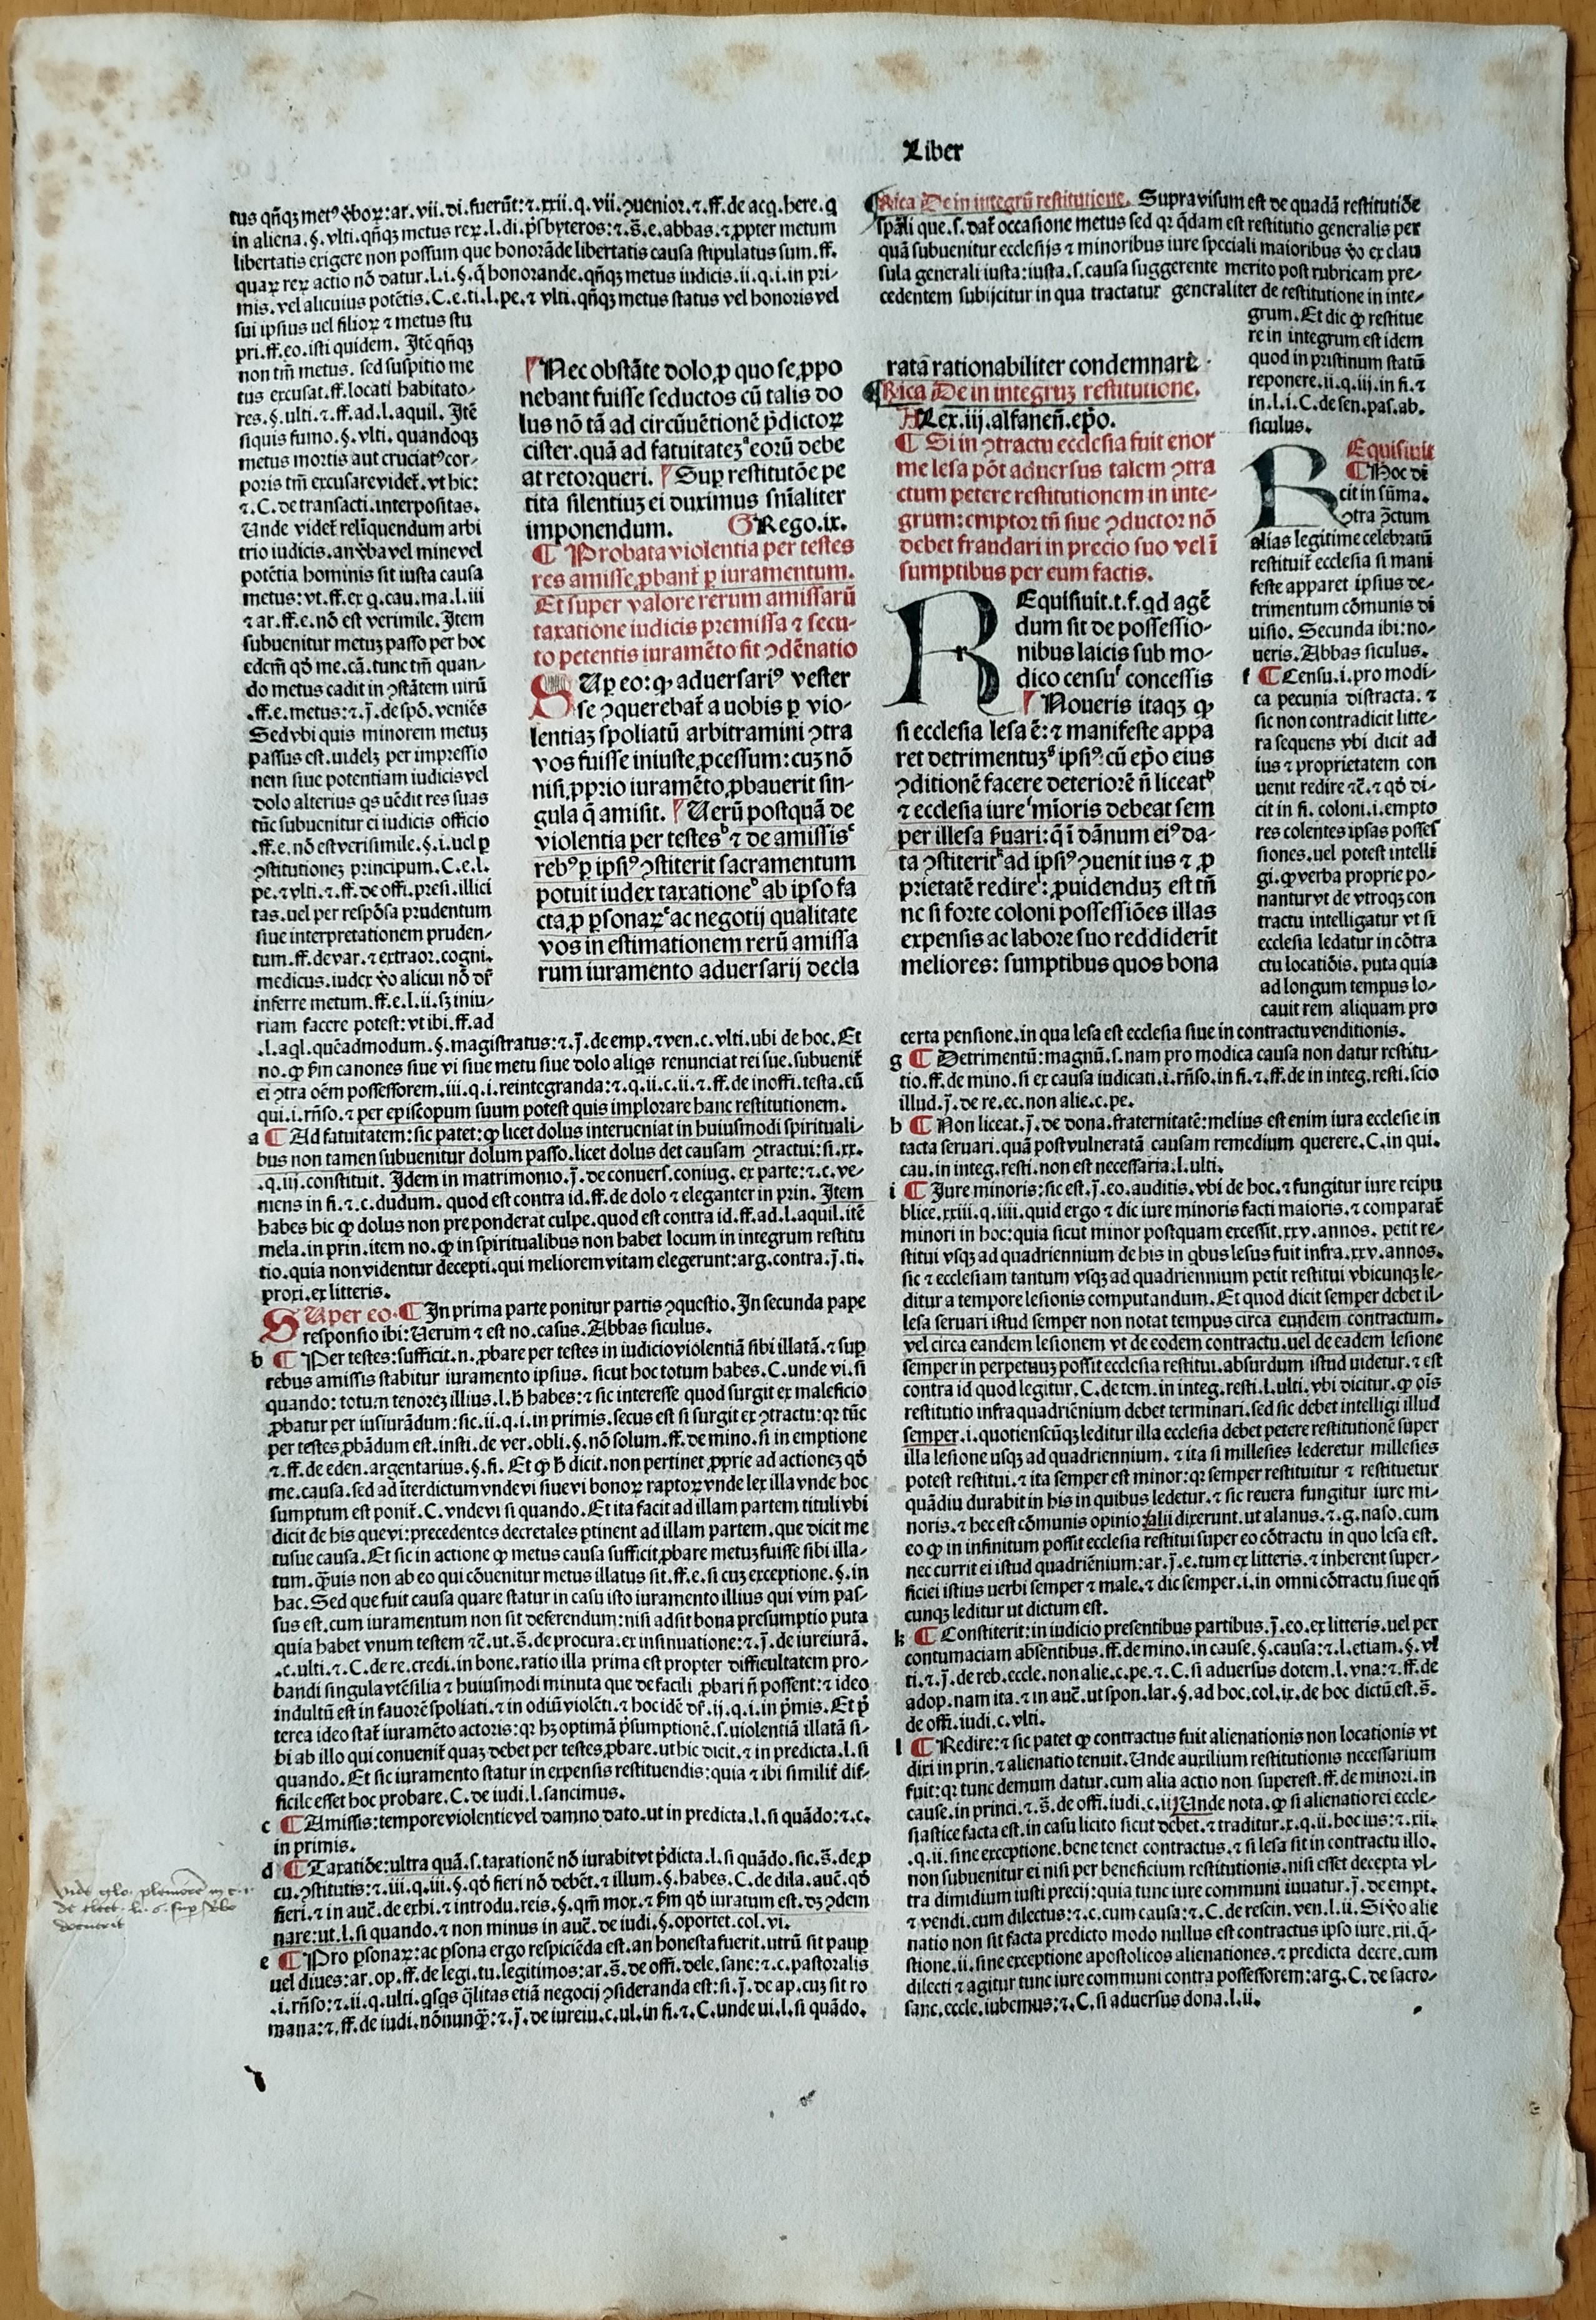 Liber
tus qñqꝫ metꝰ ꝟboꝝ: ar. vii. di. fuerũt: ⁊. xxii. q. vii. ꝯuenior. ⁊. ff. de acq. here. q
in aliena. §. vlti. qñqꝫ metus reꝝ. l. di. p̃sbyteros: ⁊. s̃. e. abbas. ⁊ ꝓpter metum
libertatis exigere non possum que honorãde libertatis causa stipulatus sum. ff.
quaꝝ reꝝ actio nõ datur. l. i. §. q̃ honorande. qñqꝫ metus iudicis. ii. q. i. in pri-
mis. vel alicuius potẽtis. C. e. ti. l. pe. ⁊ vlti. qñqꝫ metus status vel honoris vel
sui ipsius uel filioꝝ ⁊ metus stu
pri. ff. eo. isti quidem. Itẽ qñqꝫ
non tm̃ metus. sed suspitio me
tus excusat. ff. locati habitato-
res. §. ulti. ⁊. ff. ad. l. aquil. Itẽ
siquis fumo. §. vlti. quandoqꝫ
metus mortis aut cruciatꝰ cor-
poris tm̃ excusare videt̃. vt hic:
⁊. C. de transacti. interpositas.
Unde videt̃ relĩquendum arbi
trio iudicis. an ꝟba vel mine vel
potẽtia hominis sit iusta causa
metus: vt. ff. ex q. cau. ma. l. iii
⁊ ar. ff. e. nõ est verimile. Item
subuenitur metuꝫ passo per hoc
edcm̃ qđ me. cã. tunc tm̃ quan-
do metus cadit in ꝯstãtem uirũ
.ff. e. metus: ⁊. j̃. de spõ. veniẽs
Sed vbi quis minorem metuꝫ
passus est. uidelꝫ per impressio
nem siue potentiam iudicis vel
dolo alterius qs uẽdit res suas
tũc subuenitur ei iudicis officio
.ff. e. nõ est verisimile. §. i. uel ꝑ
ꝯstitutioneꝫ principum. C. e. l.
pe. ⁊ vlti. ⁊. ff. de offi. presi. illici
tas. uel per respõsa prudentum
siue interpretationem pruden-
tum. ff. de var. ⁊ extraor. cogni.
medicus. iudex ꝟo alicui nõ dr̃
inferre metum. ff. e. l. ii. sꝫ iniu-
riam facere potest: vt ibi. ff. ad
.l. aql. quẽadmodum. §. magistratus: ⁊. j̃. de emp. ⁊ ven. c. vlti. ubi de hoc. Et
no. ꝙ ẜm canones siue vi siue metu siue dolo aliqs renunciat rei sue. subuenit̃
ei ꝯtra oẽm possessorem. iii. q. i. reintegranda: ⁊. q. ii. c. ii. ⁊. ff. de inoffi. testa. cũ
qui. i. rñso. ⁊ per episcopum suum potest quis implorare hanc restitutionem.
a ¶ Ad fatuitatem: sic patet: ꝙ licet dolus interueniat in huiusmodi spirituali-
bus non tamen subuenitur dolum passo. licet dolus det causam ꝯtractui: si. xx.
.q. iij. constituit. Idem in matrimonio. j̃. de conuers. coniug. ex parte: ⁊. c. ve-
niens in fi. ⁊. c. dudum. quod est contra id. ff. de dolo ⁊ eleganter in prin. Item
habes hic ꝙ dolus non preponderat culpe. quod est contra id. ff. ad. l. aquil. itẽ
mela. in prin. item no. ꝙ in spiritualibus non habet locum in integrum restitu
tio. quia non videntur decepti. qui meliorem vitam elegerunt: arg. contra. j̃. ti.
proxi. ex litteris.
SUper eo. ¶ In prima parte ponitur partis ꝯquestio. In secunda pape
responsio ibi: Uerum ⁊ est no. casus. Abbas siculus.
b ¶ Per testes: sufficit. n. ꝓbare per testes in iudicio violentiã sibi illatã. ⁊ suꝑ
rebus amissis stabitur iuramento ipsius. sicut hoc totum habes. C. unde vi. si
quando: totum tenoreꝫ illius. l. h̃ habes: ⁊ sic interesse quod surgit ex maleficio
ꝓbatur per iusiurãdum: sic. ii. q. i. in primis. secus est si surgit ex ꝯtractu: qꝛ tũc
per testes ꝓbãdum est. insti. de ver. obli. §. nõ solum. ff. de mino. si in emptione
⁊. ff. de eden. argentarius. §. fi. Et ꝙ h̃ dicit. non pertinet ꝓprie ad actioneꝫ qđ
me. causa. sed ad ĩterdictum vnde vi siue vi bonoꝝ raptoꝝ vnde lex illa vnde hoc
sumptum est ponit̃. C. vnde vi si quando. Et ita facit ad illam partem tituli vbi
dicit de his que vi: precedentes decretales ꝑtinent ad illam partem. que dicit me
tusue causa. Et sic in actione ꝙ metus causa sufficit ꝓbare metuꝫ fuisse sibi illa-
tum. q̃uis non ab eo qui cõuenitur metus illatus sit. ff. e. si cuꝫ exceptione. §. in
hac. Sed que fuit causa quare statur in casu isto iuramento illius qui vim pas-
sus est. cum iuramentum non sit deferendum: nisi adsit bona presumptio puta
quia habet vnum testem ⁊c̃. ut. s̃. de procura. ex insinuatione: ⁊. j̃. de iureiurã.
.c. ulti. ⁊. C. de re. credi. in bone. ratio illa prima est propter difficultatem pro-
bandi singula vtẽsilia ⁊ huiusmodi minuta que de facili ꝓbari ñ possent: ⁊ ideo
indultũ est in fauorẽ spoliati. ⁊ in odiũ violẽti. ⁊ hoc idẽ dr̃. ij. q. i. in p̃mis. Et p̃
terea ideo stat̃ iuramẽto actoris: qꝛ hꝫ optimã p̃sumptionẽ. s. uiolentiã illatã si-
bi ab illo qui conuenit̃ quaꝫ debet per testes ꝓbare. ut hic dicit. ⁊ in predicta. l. si
quando. Et sic iuramento statur in expensis restituendis: quia ⁊ ibi similit̃ dif-
ficile esset hoc probare. C. de iudi. l. sancimus.
c ¶ Amissis: tempore violentie vel damno dato. ut in predicta. l. si quãdo: ⁊. c.
in primis.
d ¶ Taxatiõe: ultra quã. s. taxationẽ nõ iurabit vt p̃dicta. l. si quãdo. sic. s̃. de ꝓ
cu. ꝯstitutis: ⁊. iii. q. iii. §. qđ fieri nõ debet̃. ⁊ illum. §. habes. C. de dila. auc̃. qđ
fieri. ⁊ in auc̃. de exhi. ⁊ introdu. reis. §. qm̃ mox. ⁊ ẜm qđ iuratum est. dꝫ ꝯdem
nare: ut. l. si quando. ⁊ non minus in auc̃. de iudi. §. oportet. col. vi.
e ¶ Pro ꝑsonaꝝ: ac ꝑsona ergo respiciẽda est. an honesta fuerit. utrũ sit pauꝑ
uel diues: ar. op. ff. de legi. tu. legitimos: ar. s̃. de offi. dele. sane: ⁊. c. pastoralis
.i. rñso: ⁊. ii. q. ulti. qsqs q̃litas etiã negocij ꝯsideranda est: si. j̃. de ap. cuꝫ sit ro
mana: ⁊. ff. de iudi. nõnunq̃: ⁊. j̃. de iureiu. c. ul. in fi. ⁊. C. unde ui. l. si quãdo.
Nec obstãte dolo, ꝓ quo se, ꝓpo
nebant fuisse seductos cũ talis do
lus nõ tã ad circũuẽtionẽ p̃dictoꝝ
cister. quã ad fatuitateꝫ ᵃ eorũ debe
at retorqueri. Suꝑ restitutõe pe
tita silentiuꝫ ei duximus sñialiter
imponendum. GRego. ix.
¶ Probata violentia per testes
res amisse, ꝓbant̃ ꝑ iuramentum.
Et super valore rerum amissarũ
taxatione iudicis premissa ⁊ secu-
to petentis iuramẽto fit ꝯdẽnatio
SUꝑ eo: ꝙ aduersariꝰ vester
se ꝯquerebat̃ a uobis ꝑ vio-
lentiaꝫ spoliatũ arbitramini ꝯtra
vos fuisse iniuste, ꝓcessum: cuꝫ nõ
nisi, ꝓprio iuramẽto, ꝓbauerit sin-
gula q̃ amisit. Uerũ postquã de
violentia per testes ᵇ ⁊ de amissis ᶜ
rebꝰ ꝑ ipsiꝰ ꝯstiterit sacramentum
potuit iudex taxatione ᵈ ab ipso fa
cta, ꝓ ꝑsonaꝝ ᵉ ac negotij qualitate
vos in estimationem rerũ amissa
rum iuramento aduersarij decla
ratã rationabiliter condemnare.
¶ Rica De in integruꝫ restitutione.
ALex. iij. alfaneñ. ep̃o.
¶ Si in ꝯtractu ecclesia fuit enor
me lesa põt aduersus talem ꝯtra
ctum petere restitutionem in inte-
grum: emptor tñ siue ꝯductor nõ
debet fraudari in precio suo vel ĩ
sumptibus per eum factis.
REquisiuit. t. f. qd agẽ
dum sit de possessio-
nibus laicis sub mo-
dico censu ᶠ concessis
Noueris itaqꝫ ꝙ
si ecclesia lesa ẽ: ⁊ manifeste appa
ret detrimentuꝫ ᵍ ipsiꝰ: cũ ep̃o eius
ꝯditionẽ facere deteriorẽ ñ liceat ʰ
⁊ ecclesia iure ⁱ mĩoris debeat sem
per illesa ẜuari: q̃ ĩ dãnum eiꝰ da-
ta ꝯstiterit ᵏ ad ipsiꝰ ꝯuenit ius ⁊, ꝓ
prietatẽ redire ˡ: ꝓuidenduꝫ est tñ
ne si forte coloni possessiões illas
expensis ac labore suo reddiderĩt
meliores: sumptibus quos bona
¶ Rica De in integrũ restitutione. Supra visum est de quadã restitutiõe
sp̃ali que. s. dat̃ occasione metus sed qꝛ q̃dam est restitutio generalis per
quã subuenitur ecclesijs ⁊ minoribus iure speciali maioribus ꝟo ex clau
sula generali iusta: iusta. s. causa suggerente merito post rubricam pre-
cedentem subijcitur in qua tractatur generaliter de restitutione in inte-
grum. Et dic ꝙ restitue
re in integrum est idem
quod in pristinum statũ
reponere. ii. q. iii. in fi. ⁊
in. l. i. C. de sen. pas. ab.
siculus.
REquisiuit
¶ Hoc di
cit in sũma.
ꝯtra ꝯ̃ctum
alias legitime celebratũ
restituit̃ ecclesia si mani
feste apparet ipsius de-
trimentum cõmunis di
uisio. Secunda ibi: no-
ueris. Abbas siculus.
f ¶ Censu. i. pro modi-
ca pecunia distracta. ⁊
sic non contradicit litte-
ra sequens vbi dicit ad
ius ⁊ proprietatem con
uenit redire ⁊c̃. ⁊ qđ di-
cit in fi. coloni. i. empto
res colentes ipsas posses
siones. uel potest intelli
gi. ꝙ verba proprie po-
nantur vt de vtroqꝫ con
tractu intelligatur vt si
ecclesia ledatur in cõtra
ctu locatiõis. puta quia
ad longum tempus lo-
cauit rem aliquam pro
certa pensione. in qua lesa est ecclesia siue in contractu venditionis.
g ¶ Detrimentũ: magnũ. s. nam pro modica causa non datur restitu-
tio. ff. de mino. si ex causa iudicati. i. rñso. in fi. ⁊. ff. de in integ. resti. scio
illud. j̃. de re. ec. non alie. c. pe.
h ¶ Non liceat. j̃. de dona. fraternitatẽ: melius est enim iura ecclesie in
tacta seruari. quã post vulneratã causam remedium querere. C. in qui.
cau. in integ. resti. non est necessaria. l. ulti.
i ¶ Iure minoris: sic est. j̃. eo. auditis. vbi de hoc. ⁊ fungitur iure reipu
blice. xxiii. q. iiii. quid ergo ⁊ dic iure minoris facti maioris. ⁊ comparat̃
minori in hoc: quia sicut minor postquam excessit. xxv. annos. petit re-
stitui vsqꝫ ad quadriennium de his in qbus lesus fuit infra. xxv. annos.
sic ⁊ ecclesiam tantum vsqꝫ ad quadriennium petit restitui vbicunqꝫ le-
ditur a tempore lesionis computandum. Et quod dicit semper debet il-
lesa seruari istud semper non notat tempus circa eundem contractum.
vel circa eandem lesionem vt de eodem contractu. uel de eadem lesione
semper in perpetuuꝫ possit ecclesia restitui. absurdum istud uidetur. ⁊ est
contra id quod legitur. C. de tem. in integ. resti. l. ulti. vbi dicitur. ꝙ oĩs
restitutio infra quadriẽnium debet terminari. sed sic debet intelligi illud
semper. i. quotienscũqꝫ leditur illa ecclesia debet petere restitutionẽ super
illa lesione usqꝫ ad quadriennium. ⁊ ita si millesies lederetur millesies
potest restitui. ⁊ ita semper est minor: qꝛ semper restituitur ⁊ restituetur
quãdiu durabit in his in quibus ledetur. ⁊ sic reuera fungitur iure mi-
noris. ⁊ hec est cõmunis opinio: alii dixerunt. ut alanus. ⁊. g. naso. cum
eo ꝙ in infinitum possit ecclesia restitui super eo cõtractu in quo lesa est.
nec currit ei istud quadriẽnium: ar. j̃. e. tum ex litteris. ⁊ inherent super-
ficiei istius uerbi semper ⁊ male. ⁊ dic semper. i. in omni cõtractu siue qñ
cunqꝫ leditur ut dictum est.
k ¶ Constiterit: in iudicio presentibus partibus. j̃. eo. ex litteris. uel per
contumaciam absentibus. ff. de mino. in cause. §. causa: ⁊. l. etiam. §. vl
ti. ⁊. j̃. de reb. eccle. non alie. c. pe. ⁊. C. si aduersus dotem. l. vna: ⁊. ff. de
adop. nam ita. ⁊ in auc̃. ut spon. lar. §. ad hoc. col. ix. de hoc dictũ est. s̃.
de offi. iudi. c. vlti.
l ¶ Redire: ⁊ sic patet ꝙ contractus fuit alienationis non locationis vt
dixi in prin. ⁊ alienatio tenuit. Unde auxilium restitutionis necessarium
fuit: qꝛ tunc demum datur. cum alia actio non superest. ff. de minori. in
cause. in princi. ⁊. s̃. de offi. iudi. c. ii. Unde nota. ꝙ si alienatio rei eccle-
siastice facta est. in casu licito sicut debet. ⁊ traditur. x. q. ii. hoc ius: ⁊. xii.
.q. ii. sine exceptione. bene tenet contractus. ⁊ si lesa sit in contractu illo.
non subuenitur ei nisi per beneficium restitutionis. nisi esset decepta vl-
tra dimidium iusti precij: quia tunc iure communi iuuatur. j̃. de empt.
⁊ vendi. cum dilectus: ⁊. c. cum causa: ⁊. C. de rescin. ven. l. ii. Si ꝟo alie
natio non sit facta predicto modo nullus est contractus ipso iure. xii. q̃-
stione. ii. sine exceptione apostolicos alienationes. ⁊ predicta decre. cum
dilecti ⁊ agitur tunc iure communi contra possessorem: arg. C. de sacro-
sanc. eccle. iubemus: ⁊. C. si aduersus dona. l. ii.
vide glo. pleniorẽ in c. 1.
de elect. li. 6. sup ꝟbo
docuerit